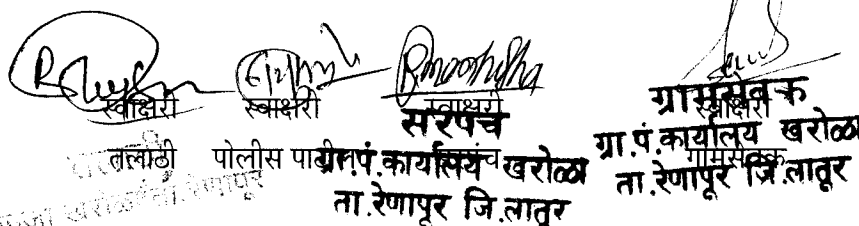 स्वाक्षरी स्वाक्षरी स्वाक्षरी स्वाक्षरी
तलाठी पोलीस पाटील सरपंच ग्रामसेवक
सरपंच
ग्रा.पं.कार्यालय खरोळा
ता.रेणापूर जि.लातूर
ग्रामसेवक
ग्रा.पं.कार्यालय खरोळा
ता.रेणापूर जि.लातूर
खरोळा ता.रेणापूर